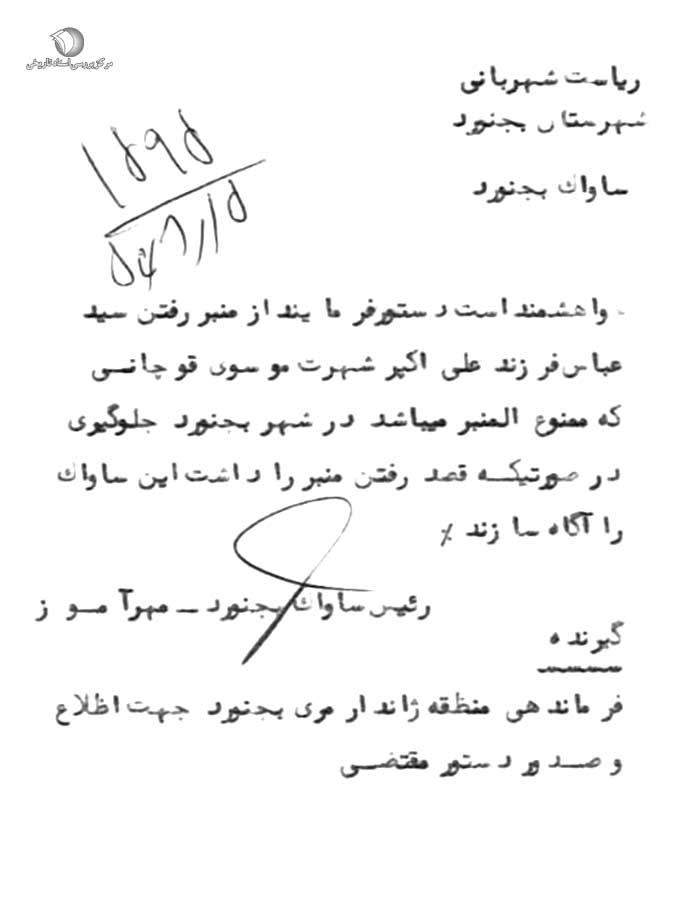 مرکز بررسی اسناد تاریخی
ریاست شهربانی
شهرستان بجنورد
ساواک بجنورد
خواهشمند است دستور فرمایند از منبر رفتن سید
عباس فرزند علی اکبر شهرت موسوی قوچانی
که ممنوع المنبر میباشد در شهر بجنورد جلوگیری
در صورتیکه قصد رفتن منبر را داشت این ساواک
را آگاه سازند ٪
رئیس ساواک بجنورد ــ مهرآموز
گیرنده
فرماندهی منطقه ژاندارمری بجنورد جهت اظلاع
و صدور دستور مقتضی